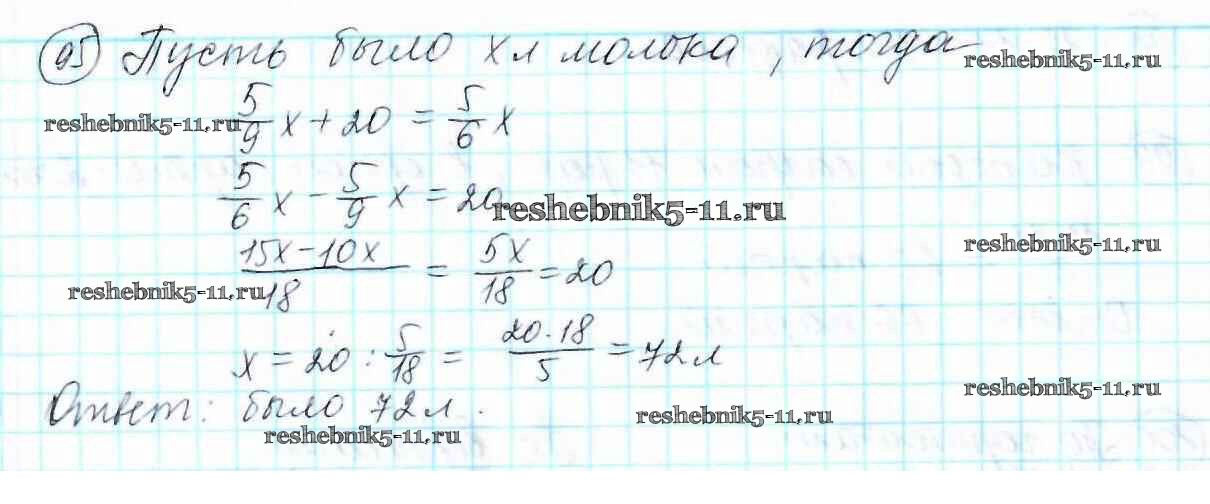 95 Пусть было x л молока, тогда
reshebnik5-11.ru
5/9 x + 20 = 5/6 x
reshebnik5-11.ru
5/6 x - 5/9 x = 20
reshebnik5-11.ru
(15x - 10x)/18 = 5x/18 = 20
reshebnik5-11.ru
reshebnik5-11.ru
x = 20 : 5/18 = (20 · 18)/5 = 72 л
reshebnik5-11.ru
Ответ: было 72 л.
reshebnik5-11.ru
reshebnik5-11.ru